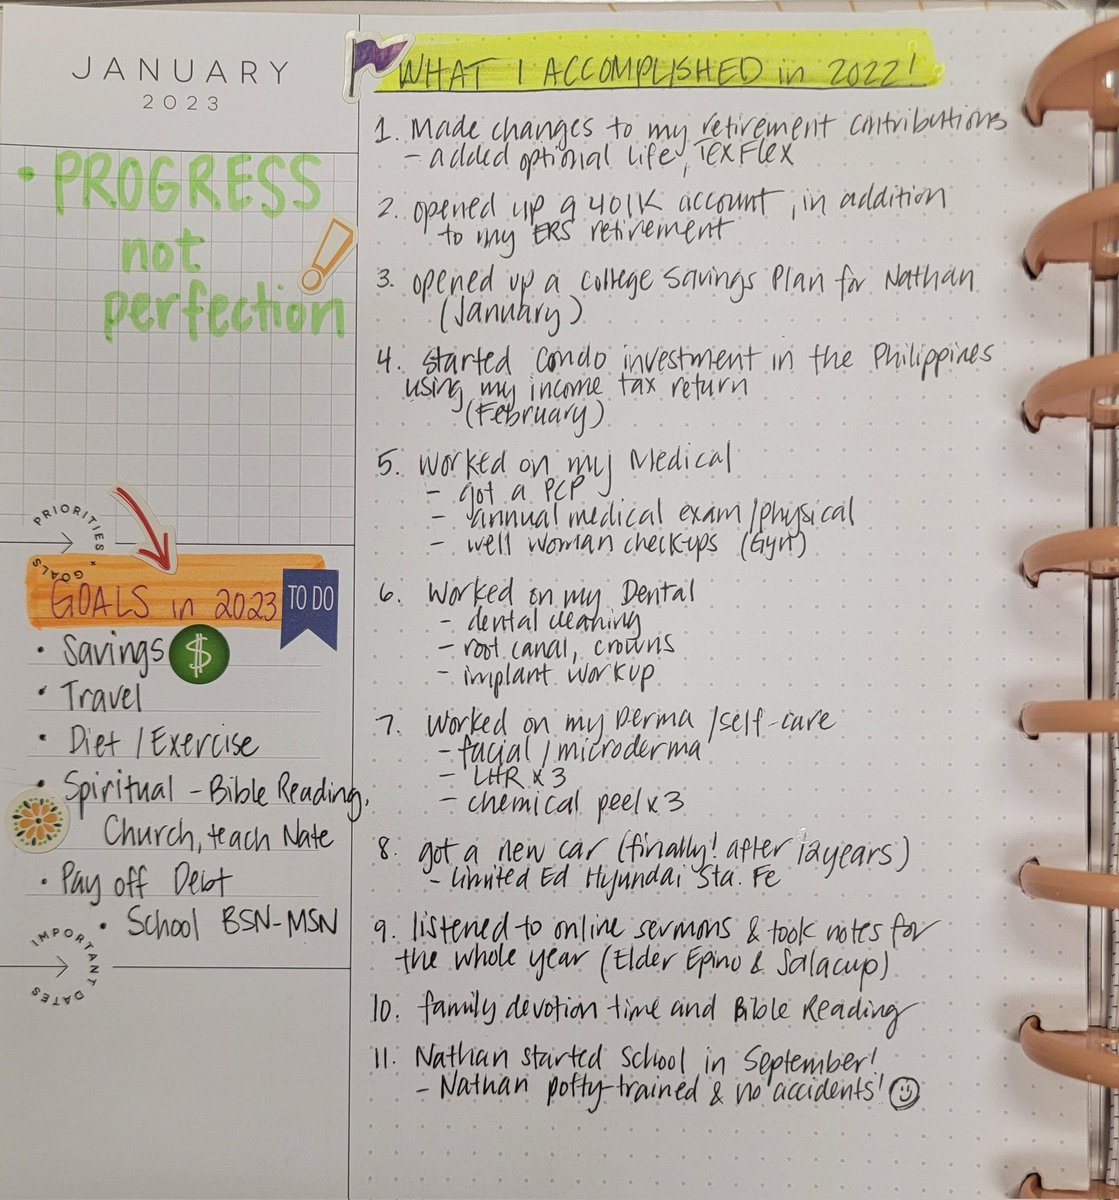 JANUARY
2023
• PROGRESS
not
perfection
PRIORITIES + GOALS
GOALS in 2023
TO DO
• Savings $
• Travel
• Diet / Exercise
• Spiritual - Bible Reading,
Church, teach Nate
• Pay off Debt
• School BSN-MSN
IMPORTANT DATES
WHAT I ACCOMPLISHED in 2022!
1. Made changes to my retirement contributions
- added optional life, TEXFlex
2. opened up a 401K account, in addition
to my ERS retirement
3. opened up a College Savings Plan for Nathan
(January)
4. started condo investment in the Philippines
using my income tax return
(February)
5. Worked on my Medical
- got a PCP
- annual medical exam/physical
- well woman checkups (Gyn)
6. Worked on my Dental
- dental cleaning
- root canal, crowns
- implant workup
7. Worked on my Derma /self-care
- facial/microderma
- LHR x 3
- chemical peel x 3
8. got a new car (finally! after 12 years)
- Limited Ed Hyundai Sta. Fe
9. listened to online sermons & took notes for
the whole year (Elder Epino & Salacup)
10. family devotion time and Bible Reading
11. Nathan started school in September!
- Nathan potty-trained & no accidents!